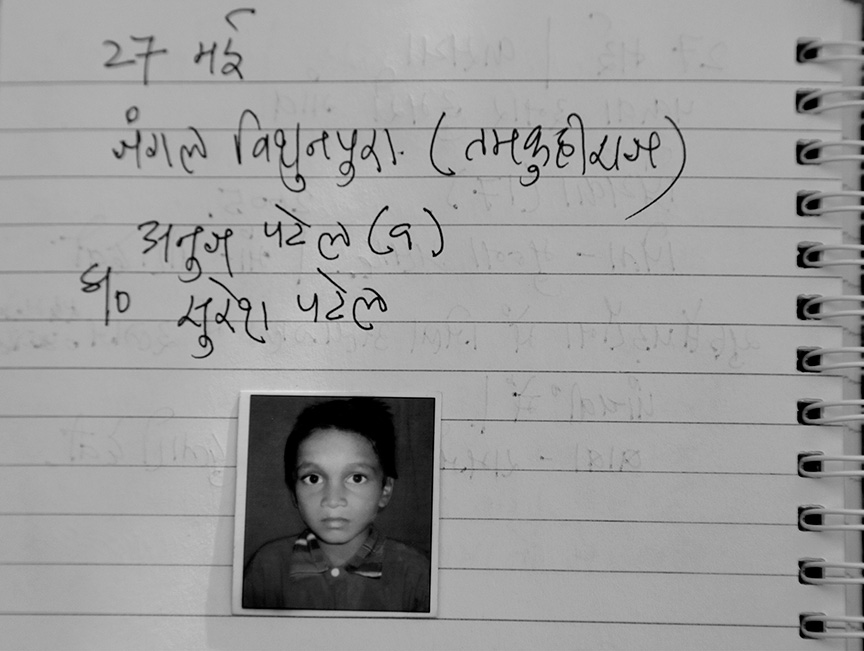 27 मई
जंगल विशुनपुरा. (तमकुहीराज)
अनुज पटेल (व)
S/o सुरेश पटेल